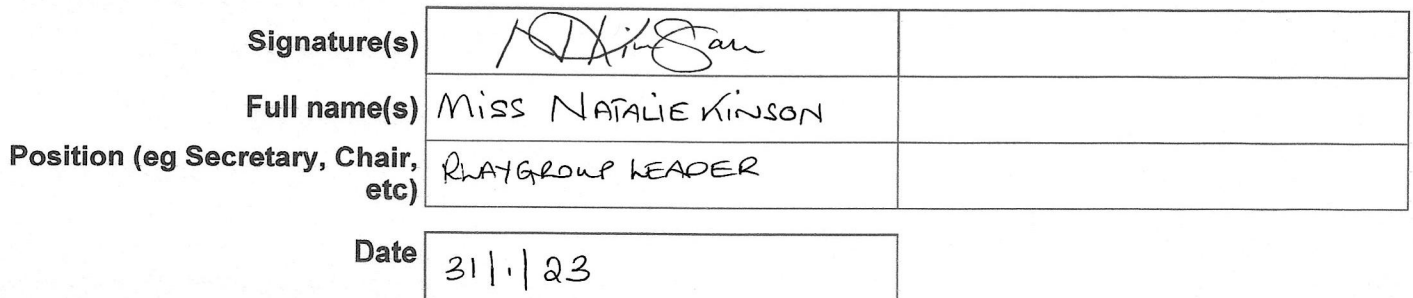 Signature(s)
Full name(s) Miss NATALIE KINSON
Position (eg Secretary, Chair, etc) PLAYGROUP LEADER
Date 31/1/23